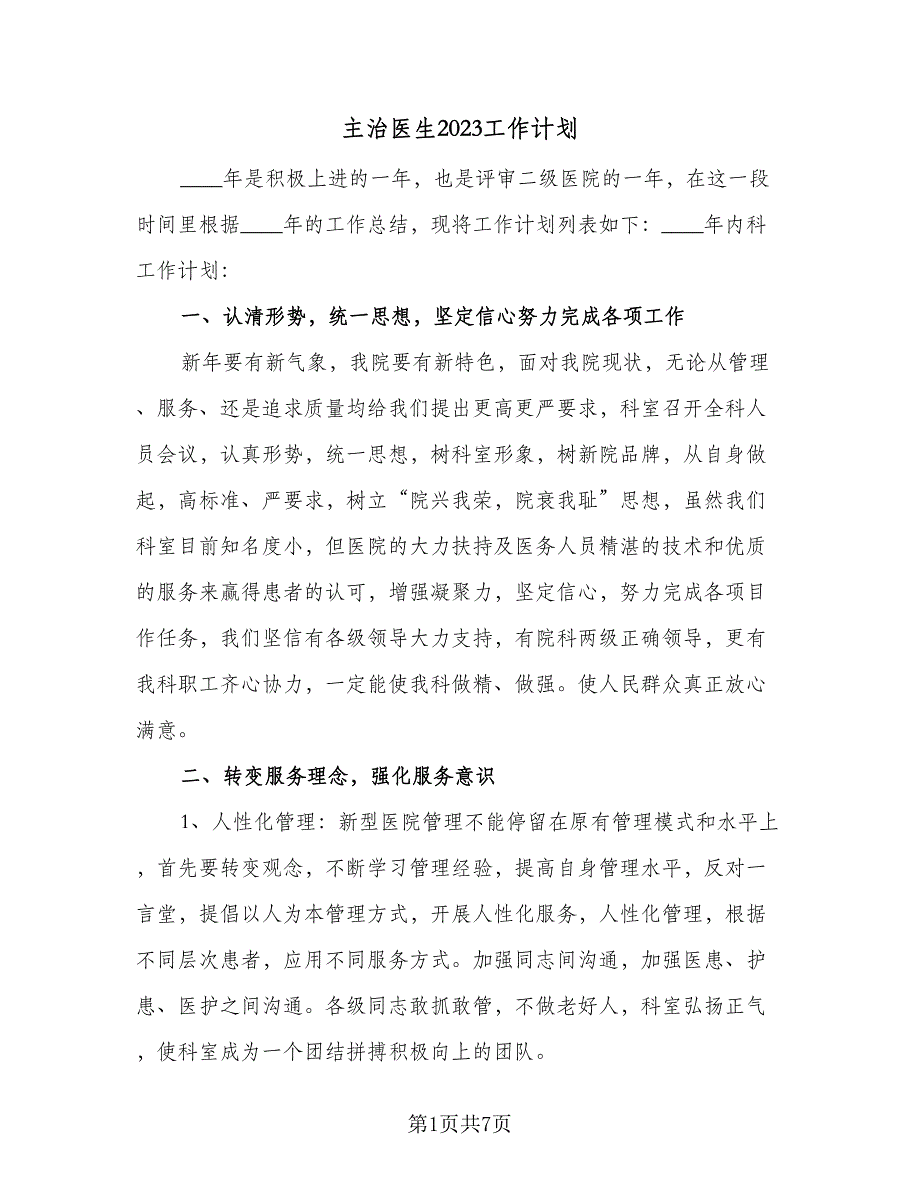 主治医生2023工作计划
____年是积极上进的一年，也是评审二级医院的一年，在这一段
时间里根据____年的工作总结，现将工作计划列表如下：____年内科
工作计划：
一、认清形势，统一思想，坚定信心努力完成各项工作
新年要有新气象，我院要有新特色，面对我院现状，无论从管理
、服务、还是追求质量均给我们提出更高更严要求，科室召开全科人
员会议，认真形势，统一思想，树科室形象，树新院品牌，从自身做
起，高标准、严要求，树立“院兴我荣，院衰我耻”思想，虽然我们
科室目前知名度小，但医院的大力扶持及医务人员精湛的技术和优质
的服务来赢得患者的认可，增强凝聚力，坚定信心，努力完成各项目
作任务，我们坚信有各级领导大力支持，有院科两级正确领导，更有
我科职工齐心协力，一定能使我科做精、做强。使人民群众真正放心
满意。
二、转变服务理念，强化服务意识
1、人性化管理：新型医院管理不能停留在原有管理模式和水平上
，首先要转变观念，不断学习管理经验，提高自身管理水平，反对一
言堂，提倡以人为本管理方式，开展人性化服务，人性化管理，根据
不同层次患者，应用不同服务方式。加强同志间沟通，加强医患、护
患、医护之间沟通。各级同志敢抓敢管，不做老好人，科室弘扬正气
，使科室成为一个团结拼搏积极向上的团队。
第1页共7页